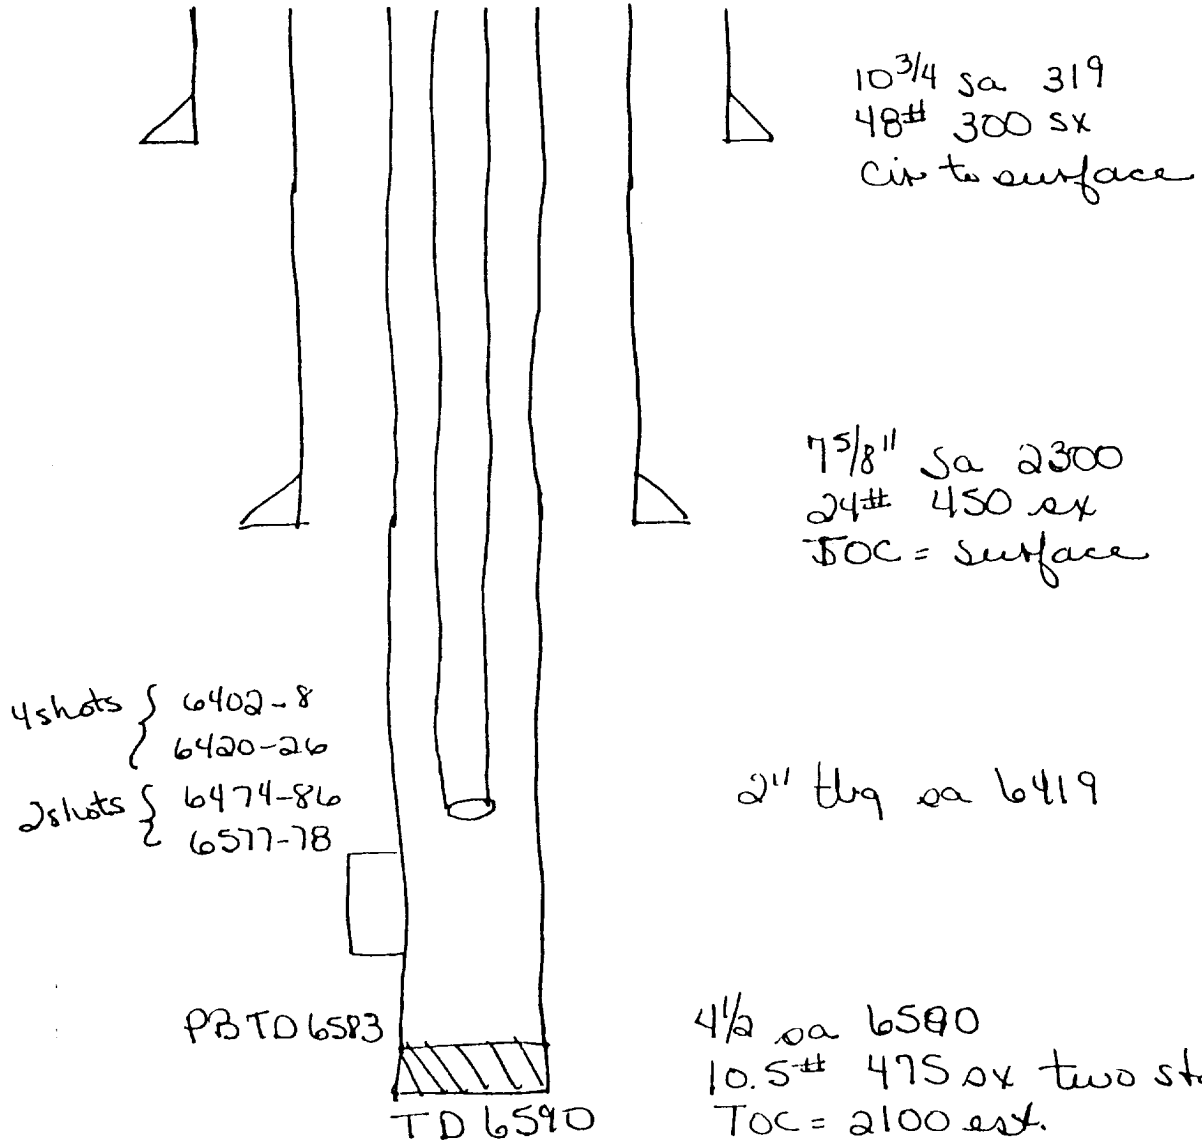 10 3/4 sa 319
48# 300 sx
Cir to surface
7 5/8" sa 2300
24# 450 sx
TOC = surface
4 shots { 6402-8
6420-26
2 shots { 6474-86
6577-78
2" tbg sa 6419
PBTD 6583
4 1/2 sa 6590
10.5# 475 sx two
TOC = 2100 est.
TD 6590